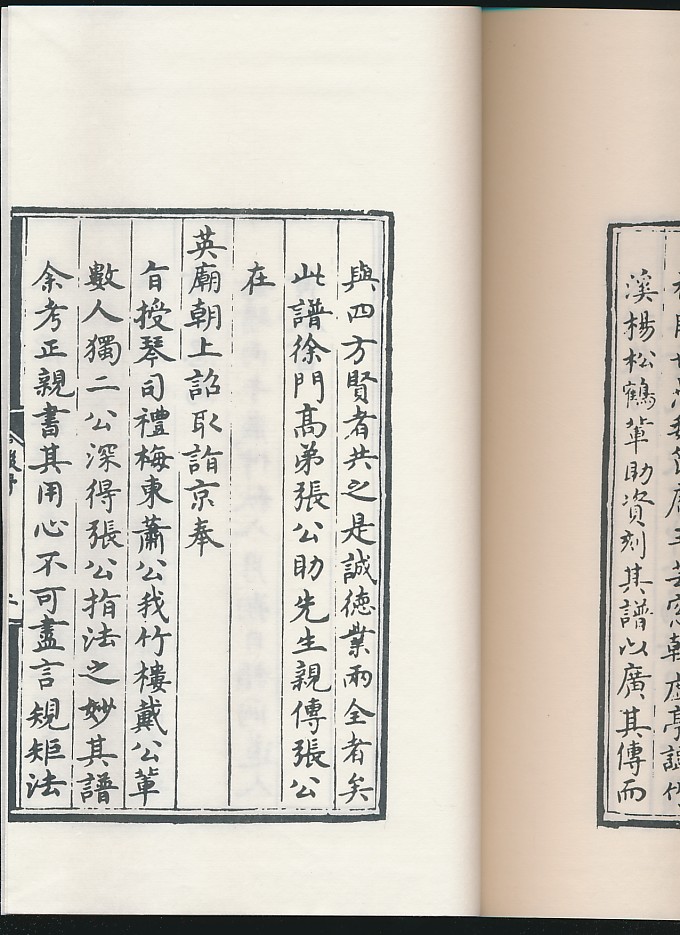 溪楊松鶴輩助資刻其譜以廣其傳而
與四方賢者共之是誠德業兩全者矣
此譜徐門高弟張公助先生親傳張公
在
英廟朝上詔取詣京奉
旨授琴司禮梅東蕭公我竹樓戴公輩
數人獨二公深得張公指法之妙其譜
余考正親書其用心不可盡言規矩法